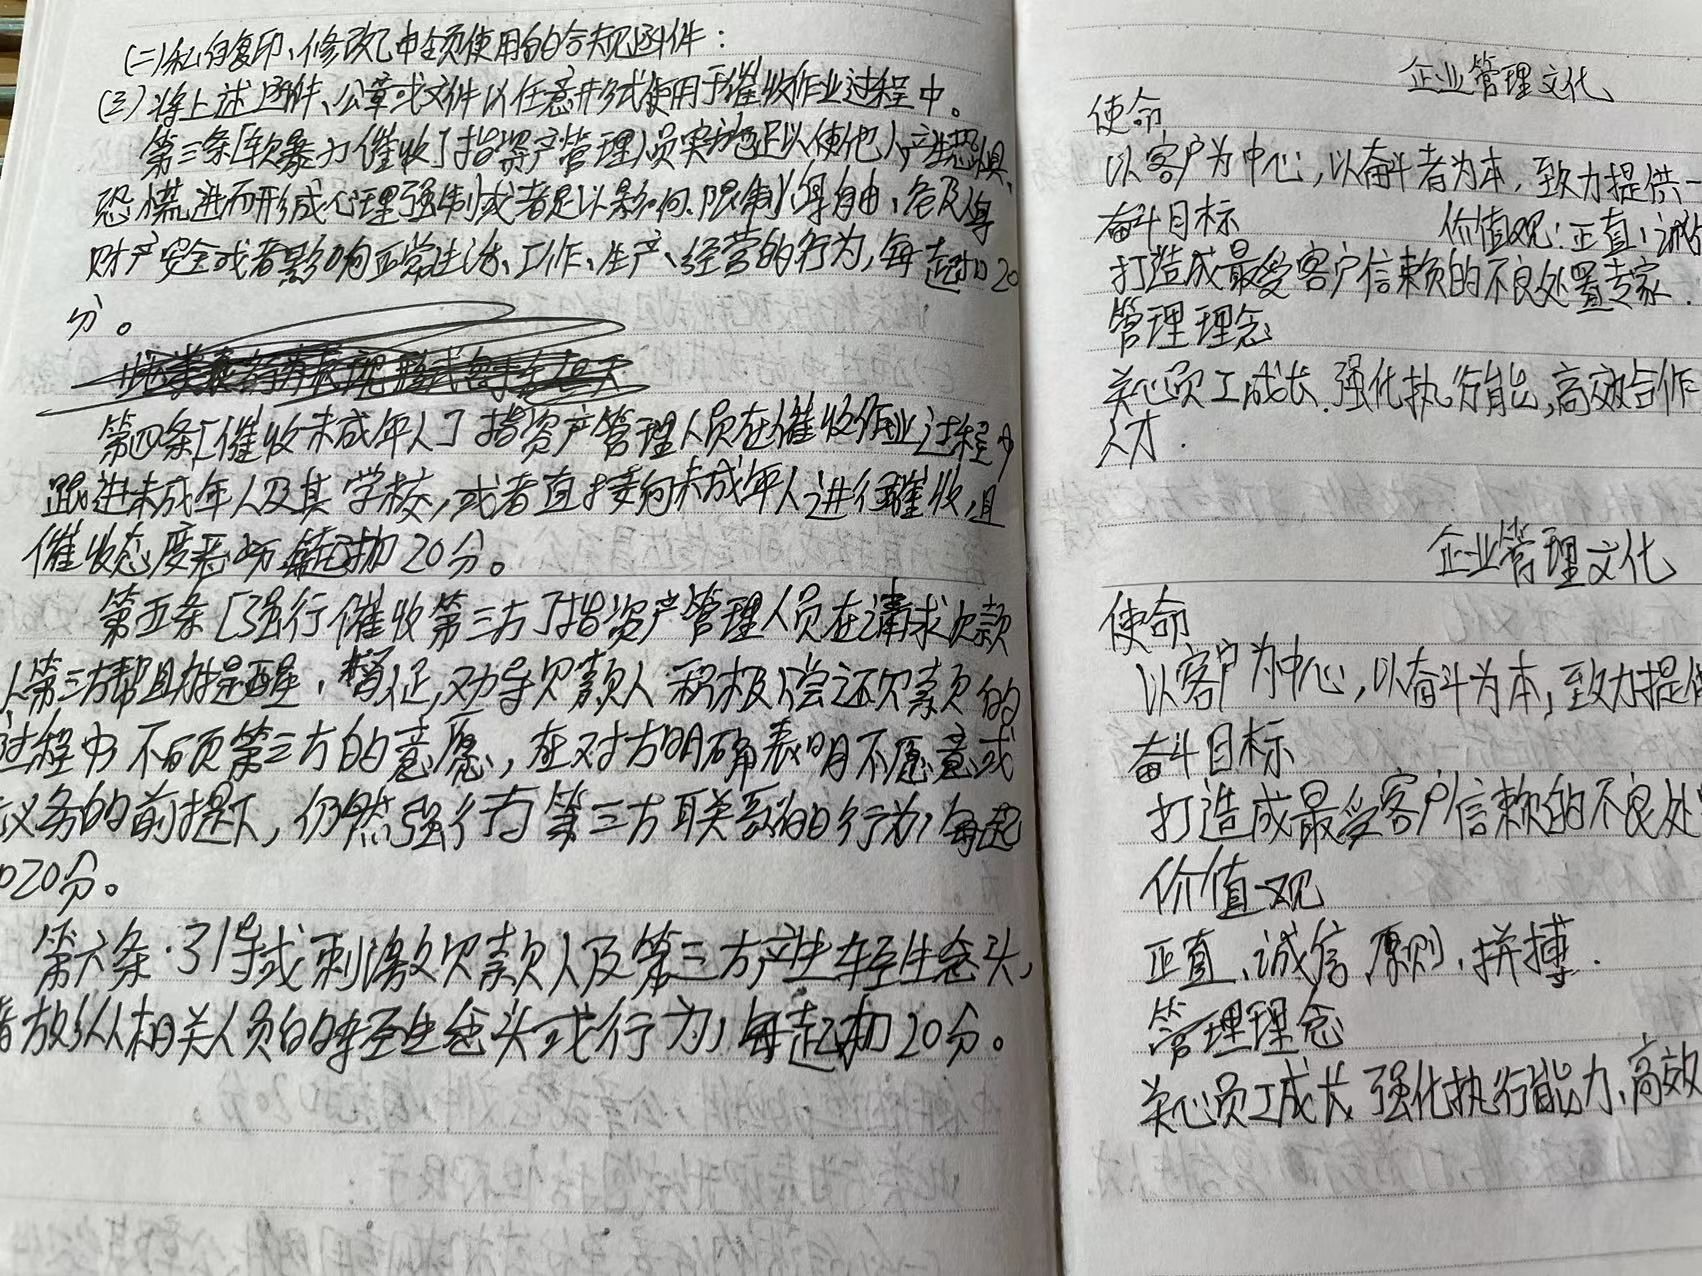 (二)私自复印、修改已申领使用的合规函件：
(三)将上述函件、公章或文件以任意形式使用于催收作业过程中。
第三条[软暴力催收]指资产管理人员实施足以使他人产生恐惧、
恐慌进而形成心理强制或者足以影响、限制人身自由、危及人身
财产安全或者影响正常生活、工作、生产、经营的行为,每起扣20
分。
第四条[催收未成年人]指资产管理人员在催收作业过程中
跟进未成年人及其学校,或者直接向未成年人进行催收,且
催收态度恶劣 每起扣20分。
第五条[强行催收第三方]指资产管理人员在请求欠款
人第三方帮助提醒、督促,劝导欠款人积极偿还欠款的
过程中不顾第三方的意愿,在对方明确表明不愿意或
义务的前提下,仍然强行与第三方联系的行为,每起
扣20分。
第六条.引导或刺激欠款人及第三方产生轻生念头,
者放纵相关人员的轻生念头或行为,每起扣20分。
企业管理文化
使命
以客户为中心,以奋斗者为本,致力提供一
奋斗目标 价值观:正直、诚信
打造成最受客户信赖的不良处置专家.
管理理念
关心员工成长.强化执行能力,高效合作
人才.
企业管理文化
使命
以客户为中心,以奋斗为本,致力提供
奋斗目标
打造成最受客户信赖的不良处置
价值观
正直、诚信、原则、拼搏.
管理理念
关心员工成长 强化执行能力、高效